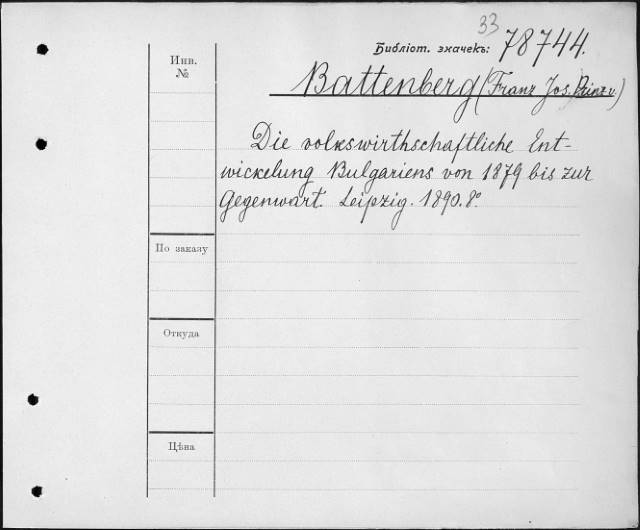 33
Библіот. значекъ: 78744.
Инв.
№
Battenberg (Franz Jos. Prinz v.)
Die volkswirthschaftliche Ent-
wickelung Bulgariens von 1879 bis zur
Gegenwart. Leipzig. 1890. 8°.
По заказу
Откуда
Цѣна